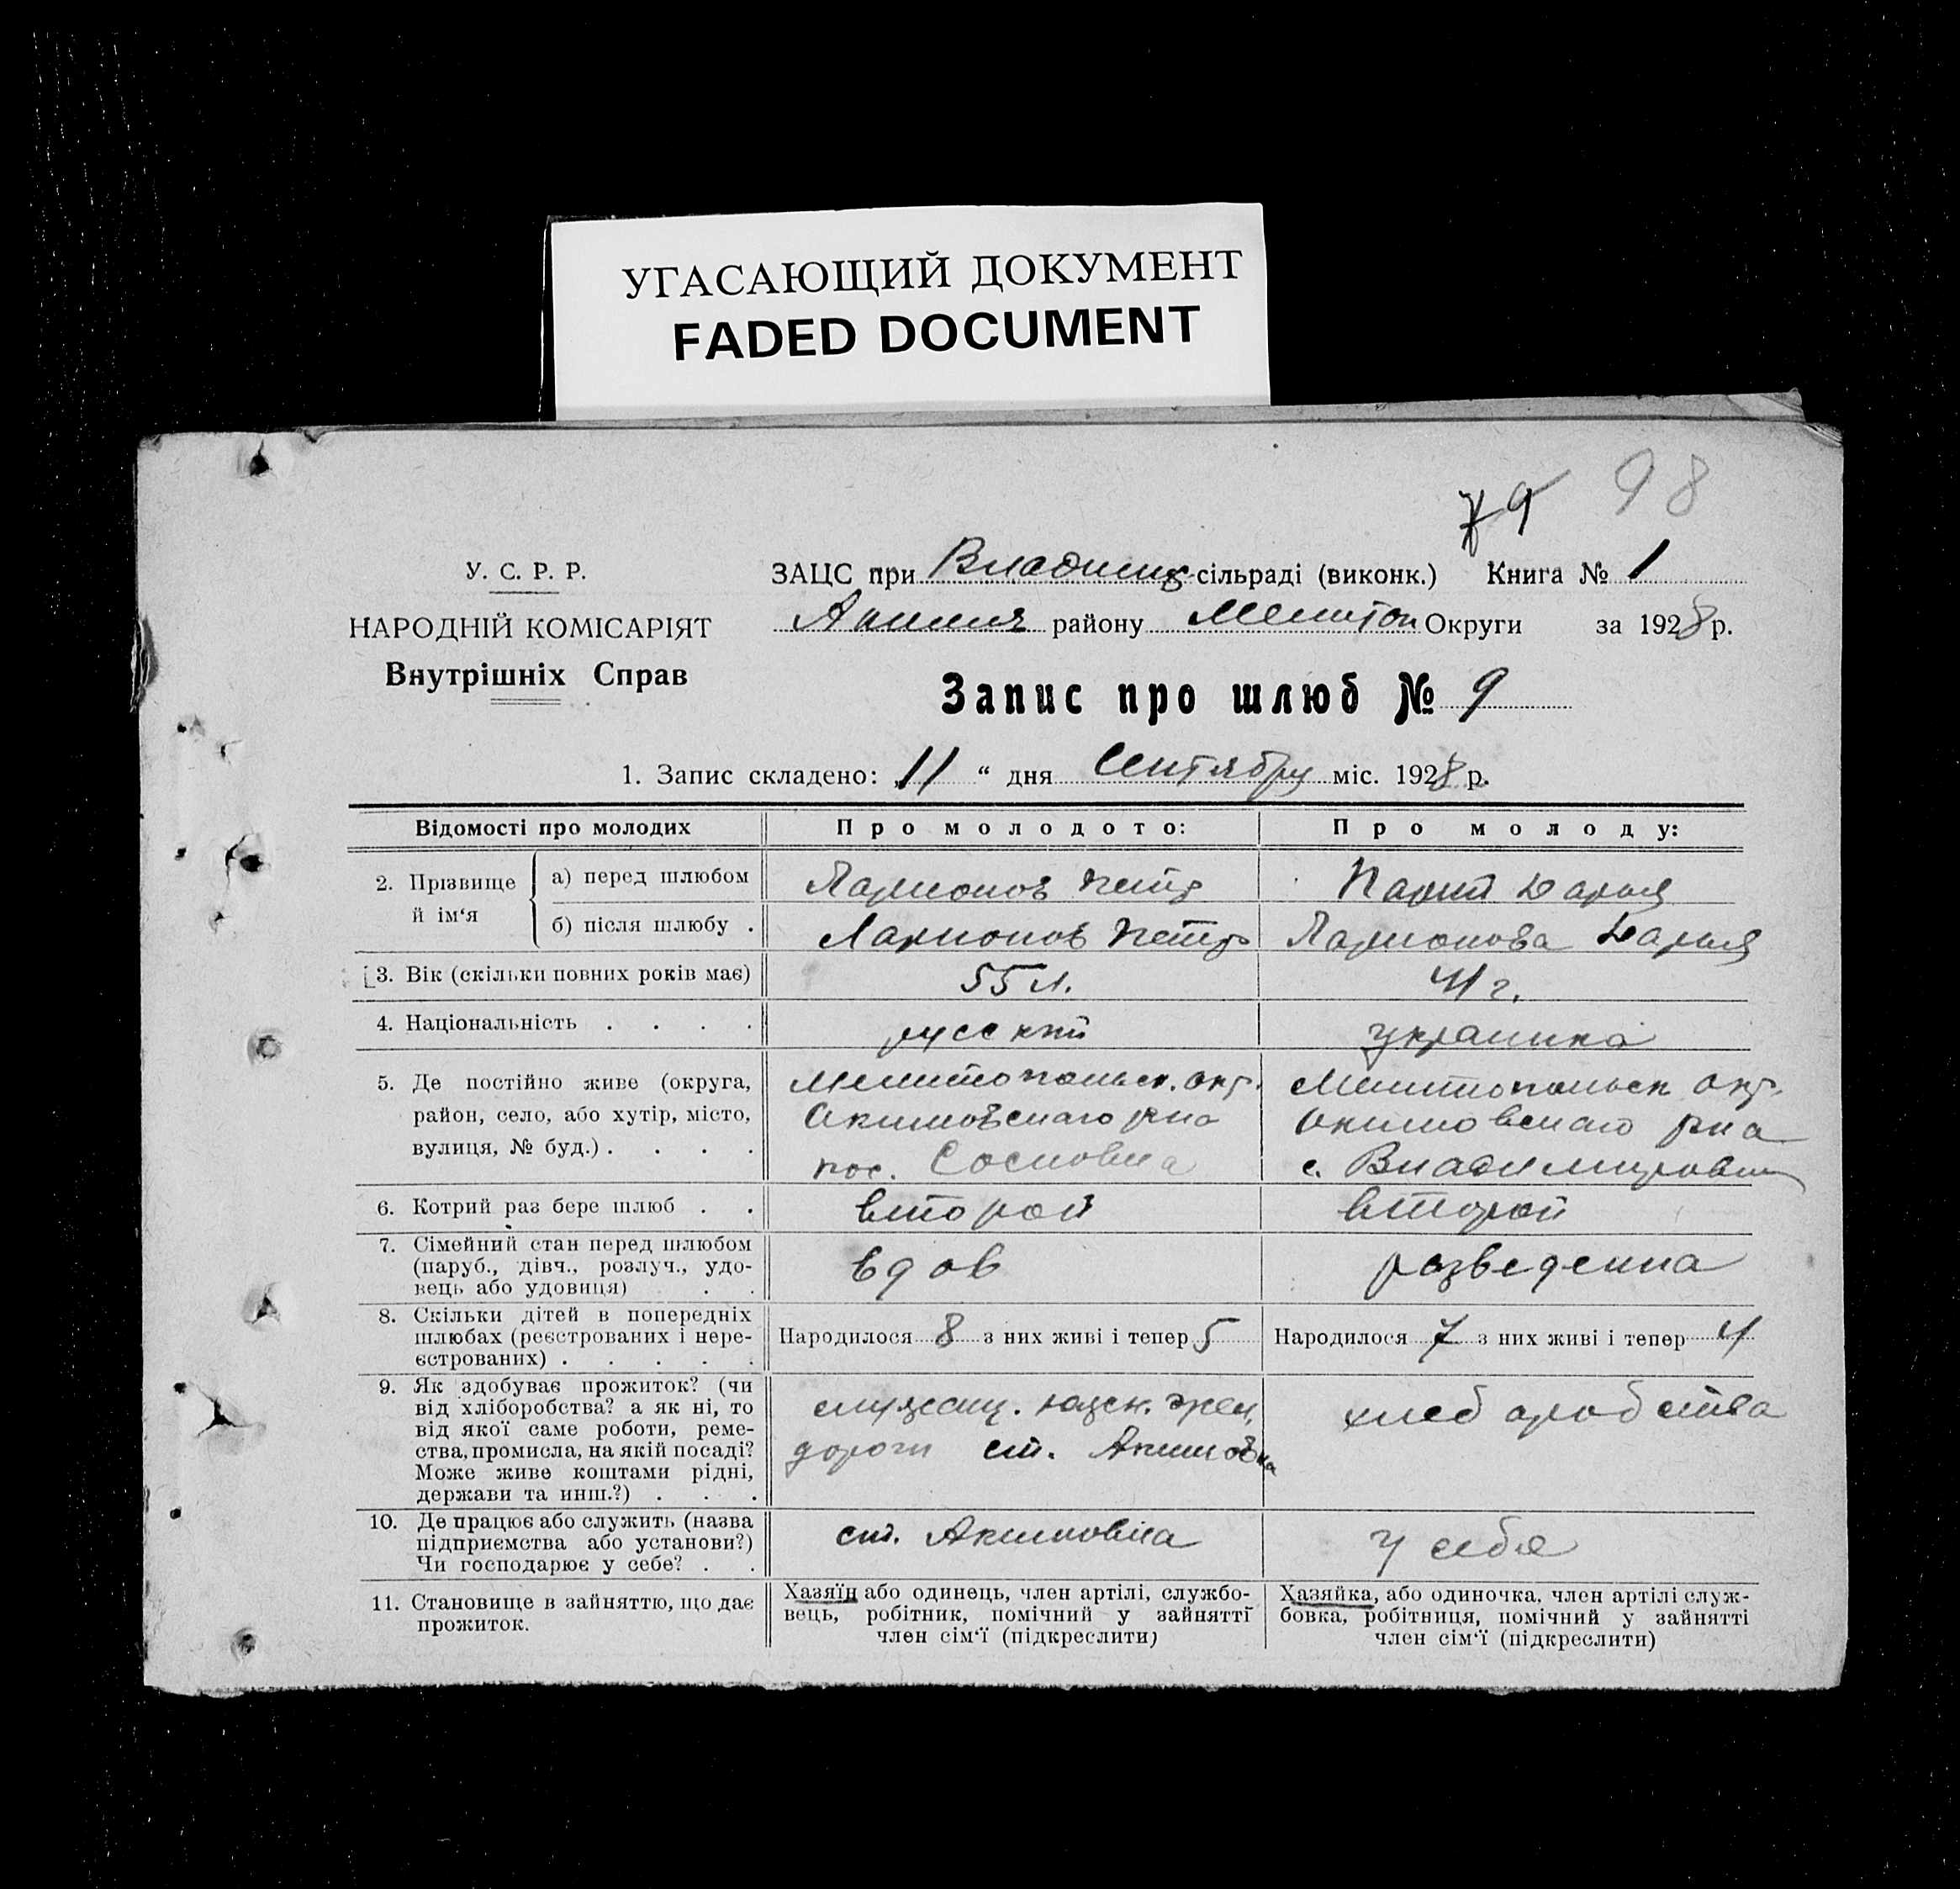 УГАСАЮЩИЙ ДОКУМЕНТ
FADED DOCUMENT
79 98
У. С. Р. Р.
НАРОДНІЙ КОМІСАРІЯТ
Внутрішніх Справ
ЗАЦС при Владимир сільраді (виконк.) Книга № 1
Акимов району Мелитоп Округи за 1928 р.
Запис про шлюб № 9
1. Запис складено: 11 “ дня Сентября міс. 1928 р.
Відомості про молодих
Про молодото:
Про молоду:
2. Прізвище й ім‘я
а) перед шлюбом
Ларионов Петр
Дарья
б) після шлюбу .
Ларионов Петр
Ларионова Дарья
3. Вік (скільки повних років має)
55 л.
41 г.
4. Національність . . . .
русский
украинка
5. Де постійно живе (округа,
район, село, або хутір, місто,
вулиця, № буд.) . . . .
Мелитопольск. окр.
Акимовскаго рна
пос. Сосновка
Мелитопольск окр.
Акимовскаго рна
с. Владимировка
6. Котрий раз бере шлюб . .
второй
второй
7. Сімейний стан перед шлюбом
(паруб., дівч., розлуч., удо-
вець або удовиця) . .
вдов
розведенна
8. Скільки дітей в попередніх
шлюбах (реєстрованих і нере-
єстрованих) . . . . .
Народилося 8 з них живі і тепер 5
Народилося 7 з них живі і тепер 4
9. Як здобуває прожиток? (чи
від хліборобства? а як ні, то
від якої саме роботи, реме-
ства, промисла, на якій посаді?
Може живе коштами рідні,
держави та инш.?) . . .
жел.
дороги ст. Акимовка
хлебаробства
10. Де працює або служить (назва
підприємства або установи?)
Чи господарює у себе? . .
ст. Акимовка
у себя
11. Становище в зайняттю, що дає
прожиток.
Хазяїн або одинець, член артілі, службо-
вець, робітник, помічний у зайнятті
член сім‘ї (підкреслити)
Хазяйка, або одиночка, член артілі служ-
бовка, робітниця, помічний у зайнятті
член сім‘ї (підкреслити)